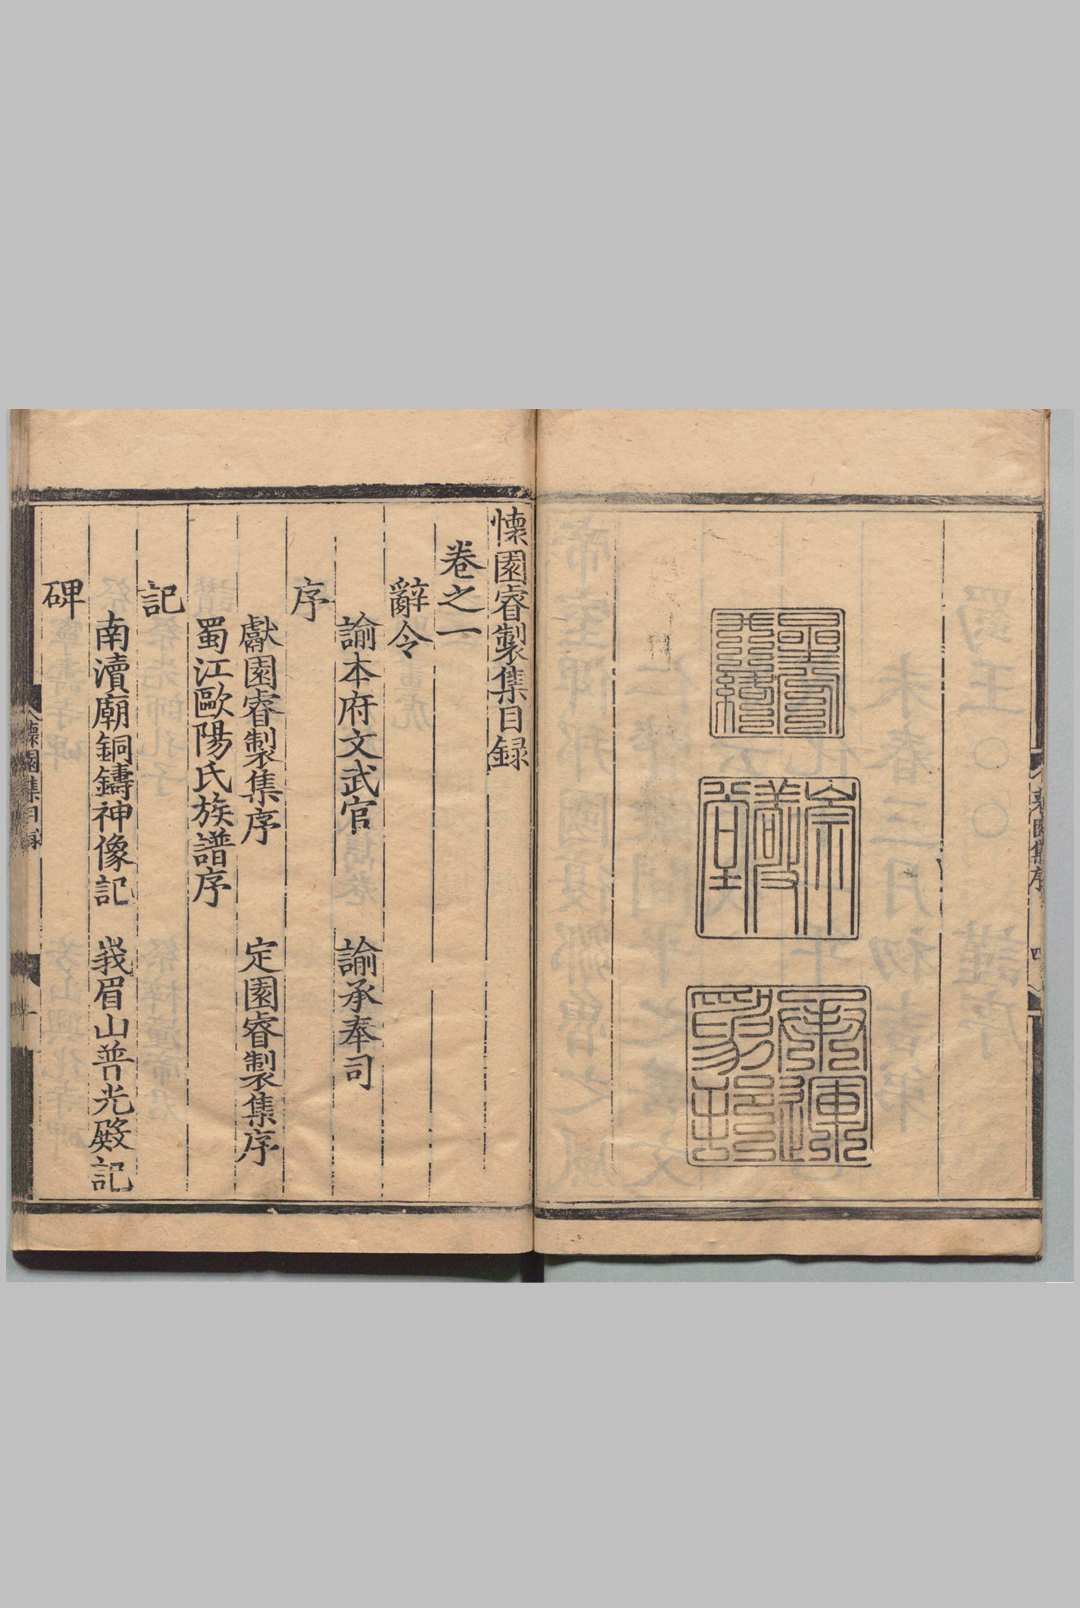 懷園集序
四
懷園睿製集目録
卷之一
辭令
諭本府文武官 諭承奉司
序
獻園睿製集序 定園睿製集序
蜀江歐陽氏族譜序
記
南瀆廟銅鑄神像記 峩眉山普光殿記
碑
懷園集目録
一